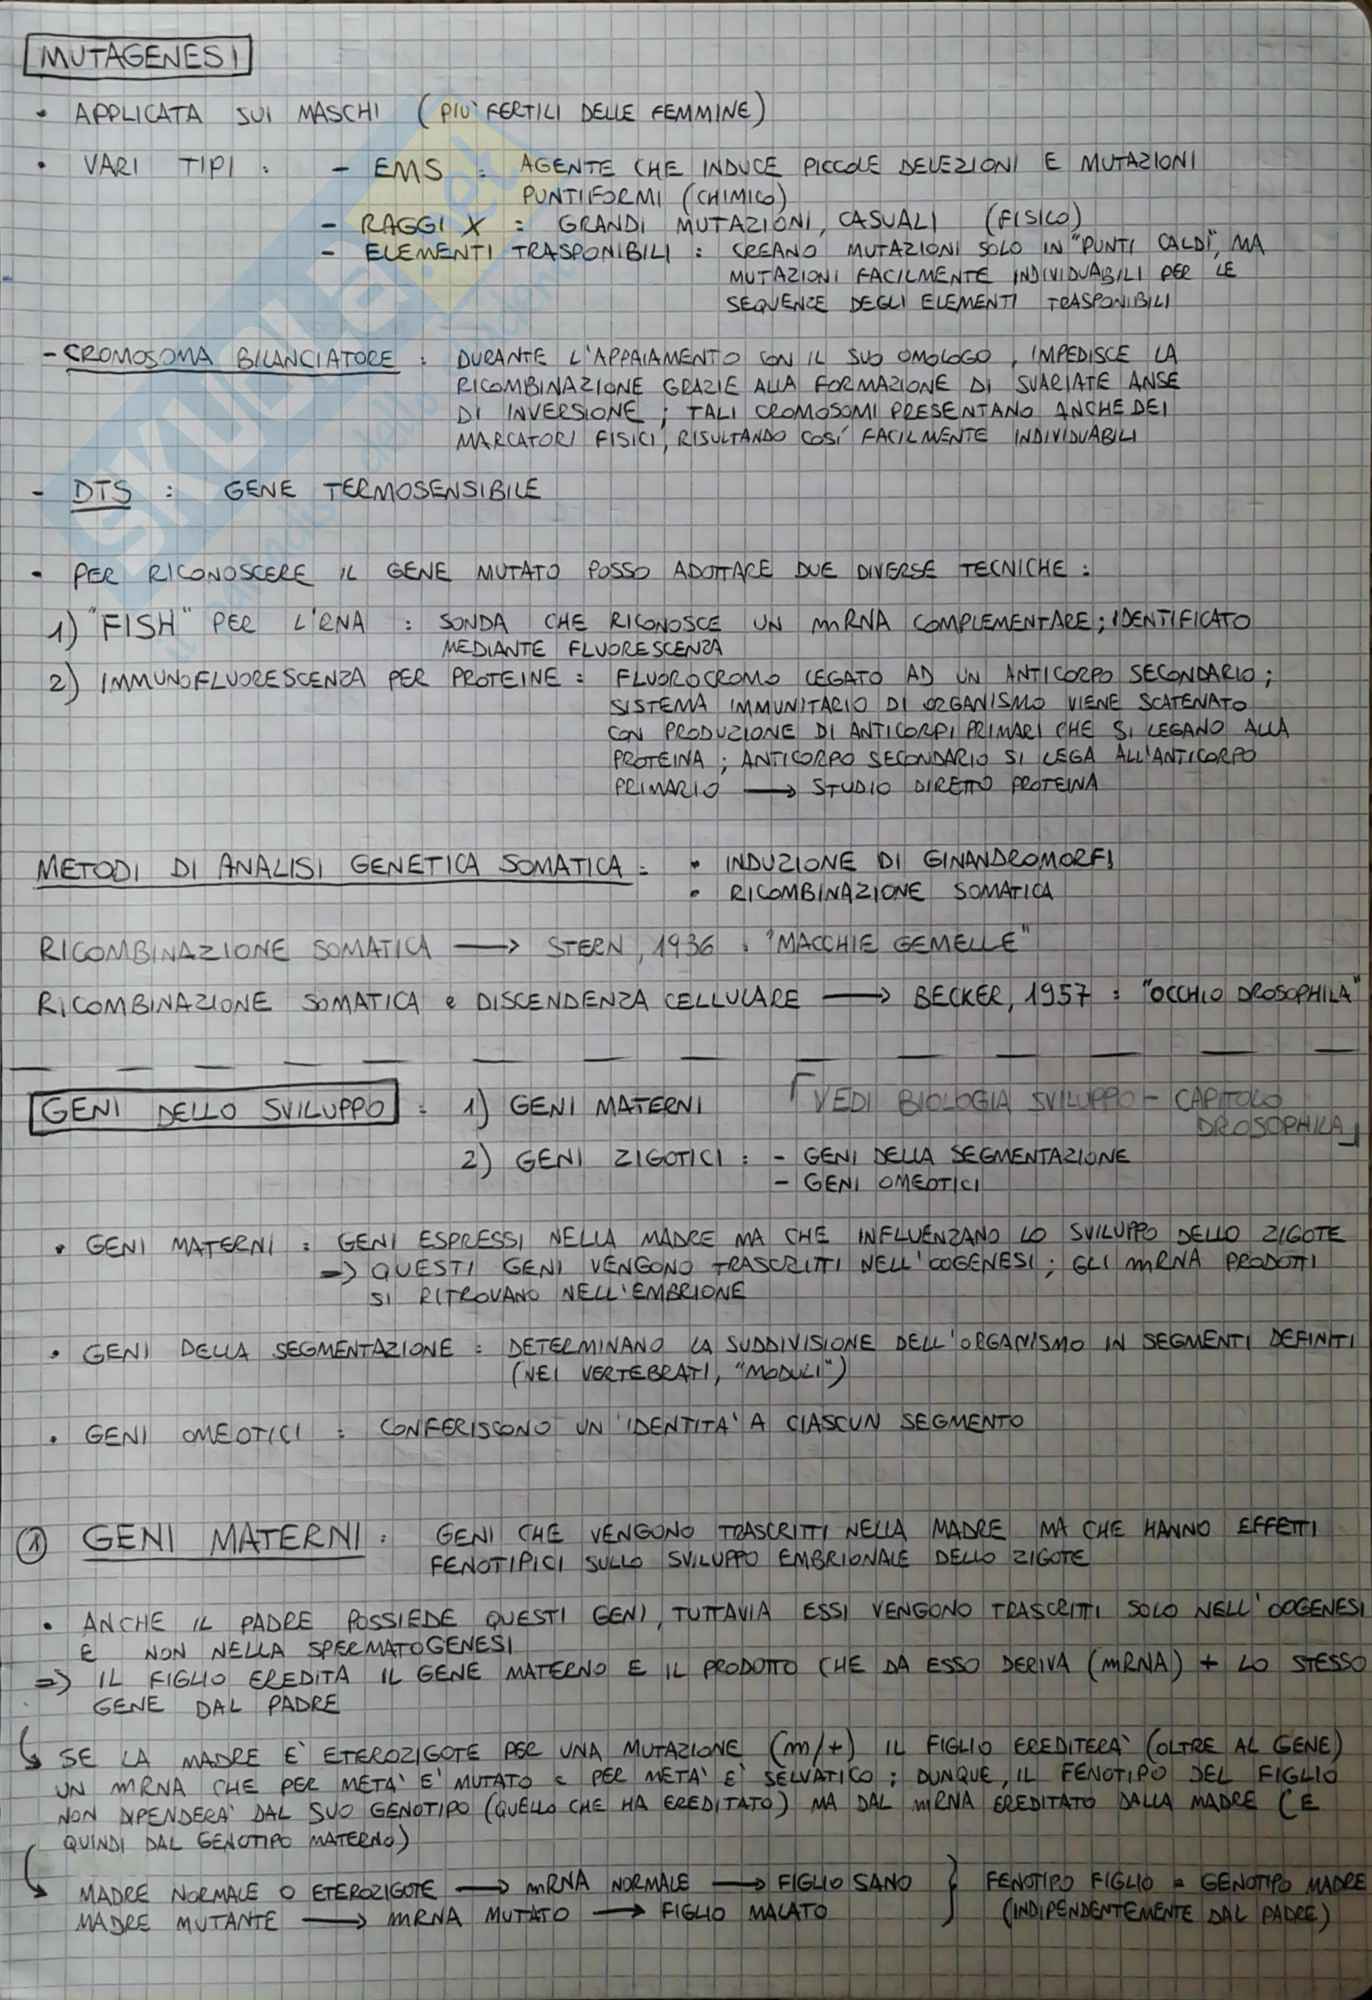 MUTAGENESI
• APPLICATA SUI MASCHI (PIU' FERTILI DELLE FEMMINE)
• VARI TIPI : - EMS : AGENTE CHE INDUCE PICCOLE DELEZIONI E MUTAZIONI
PUNTIFORMI (CHIMICO)
- RAGGI X : GRANDI MUTAZIONI, CASUALI (FISICO)
- ELEMENTI TRASPONIBILI : CREANO MUTAZIONI SOLO IN "PUNTI CALDI", MA
MUTAZIONI FACILMENTE INDIVIDUABILI PER LE
SEQUENZE DEGLI ELEMENTI TRASPONIBILI
- CROMOSOMA BILANCIATORE : DURANTE L'APPAIAMENTO CON IL SUO OMOLOGO, IMPEDISCE LA
RICOMBINAZIONE GRAZIE ALLA FORMAZIONE DI SVARIATE ANSE
DI INVERSIONE ; TALI CROMOSOMI PRESENTANO ANCHE DEI
MARCATORI FISICI, RISULTANDO COSI' FACILMENTE INDIVIDUABILI
- DTS : GENE TERMOSENSIBILE
• PER RICONOSCERE IL GENE MUTATO POSSO ADOTTARE DUE DIVERSE TECNICHE :
1) "FISH" PER L'RNA : SONDA CHE RICONOSCE UN mRNA COMPLEMENTARE ; IDENTIFICATO
MEDIANTE FLUORESCENZA
2) IMMUNOFLUORESCENZA PER PROTEINE : FLUOROCROMO LEGATO AD UN ANTICORPO SECONDARIO ;
SISTEMA IMMUNITARIO DI ORGANISMO VIENE SCATENATO
CON PRODUZIONE DI ANTICORPI PRIMARI CHE SI LEGANO ALLA
PROTEINA ; ANTICORPO SECONDARIO SI LEGA ALL'ANTICORPO
PRIMARIO → STUDIO DIRETTO PROTEINA
METODI DI ANALISI GENETICA SOMATICA : • INDUZIONE DI GINANDROMORFI
• RICOMBINAZIONE SOMATICA
RICOMBINAZIONE SOMATICA → STERN, 1936 : "MACCHIE GEMELLE"
RICOMBINAZIONE SOMATICA e DISCENDENZA CELLULARE → BECKER, 1957 : "OCCHIO DROSOPHILA"
GENI DELLO SVILUPPO : 1) GENI MATERNI [VEDI BIOLOGIA SVILUPPO - CAPITOLO
DROSOPHILA]
2) GENI ZIGOTICI : - GENI DELLA SEGMENTAZIONE
- GENI OMEOTICI
• GENI MATERNI : GENI ESPRESSI NELLA MADRE MA CHE INFLUENZANO LO SVILUPPO DELLO ZIGOTE
=> QUESTI GENI VENGONO TRASCRITTI NELL'OOGENESI ; GLI mRNA PRODOTTI
SI RITROVANO NELL'EMBRIONE
• GENI DELLA SEGMENTAZIONE : DETERMINANO LA SUDDIVISIONE DELL'ORGANISMO IN SEGMENTI DEFINITI
(NEI VERTEBRATI, "MODULI")
• GENI OMEOTICI : CONFERISCONO UN'IDENTITA' A CIASCUN SEGMENTO
① GENI MATERNI : GENI CHE VENGONO TRASCRITTI NELLA MADRE MA CHE HANNO EFFETTI
FENOTIPICI SULLO SVILUPPO EMBRIONALE DELLO ZIGOTE
• ANCHE IL PADRE POSSIEDE QUESTI GENI, TUTTAVIA ESSI VENGONO TRASCRITTI SOLO NELL'OOGENESI
E NON NELLA SPERMATOGENESI
=> IL FIGLIO EREDITA IL GENE MATERNO E IL PRODOTTO CHE DA ESSO DERIVA (mRNA) + LO STESSO
GENE DAL PADRE
↳ SE LA MADRE E' ETEROZIGOTE PER UNA MUTAZIONE (m/+) IL FIGLIO EREDITERA' (OLTRE AL GENE)
UN mRNA CHE PER META' E' MUTATO e PER META' E' SELVATICO ; DUNQUE, IL FENOTIPO DEL FIGLIO
NON DIPENDERA' DAL SUO GENOTIPO (QUELLO CHE HA EREDITATO) MA DAL mRNA EREDITATO DALLA MADRE (E
QUINDI DAL GENOTIPO MATERNO)
↳ MADRE NORMALE O ETEROZIGOTE → mRNA NORMALE → FIGLIO SANO } FENOTIPO FIGLIO = GENOTIPO MADRE
MADRE MUTANTE → mRNA MUTATO → FIGLIO MALATO (INDIPENDENTEMENTE DAL PADRE)
SKUOLA.net